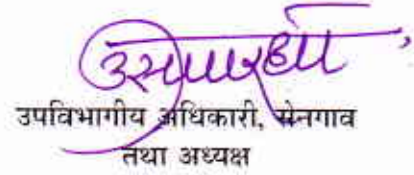 उपविभागीय अधिकारी, सेनगाव
तथा अध्यक्ष